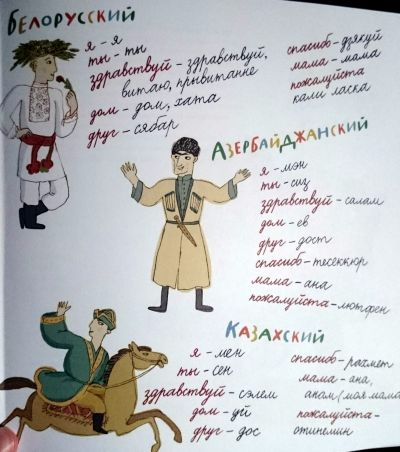 Белорусский
я – я
ты – ты
здравствуй – здравствуй,
витаю, прывитанне
дом – дом, хата
друг – сябар
спасибо – дзякуй
мама – мама
пожалуйста
кали ласка
Азербайджанский
я – мэн
ты – сиз
здравствуй – салам
дом – ев
друг – дост
спасибо – тесеккюр
мама – ана
пожалуйста – лютфен
Казахский
я – мен
ты – сен
здравствуй – сэлем
дом – уй
друг – дос
спасибо – рахмет
мама – ана,
анам (моя мама
пожалуйста –
отинемин